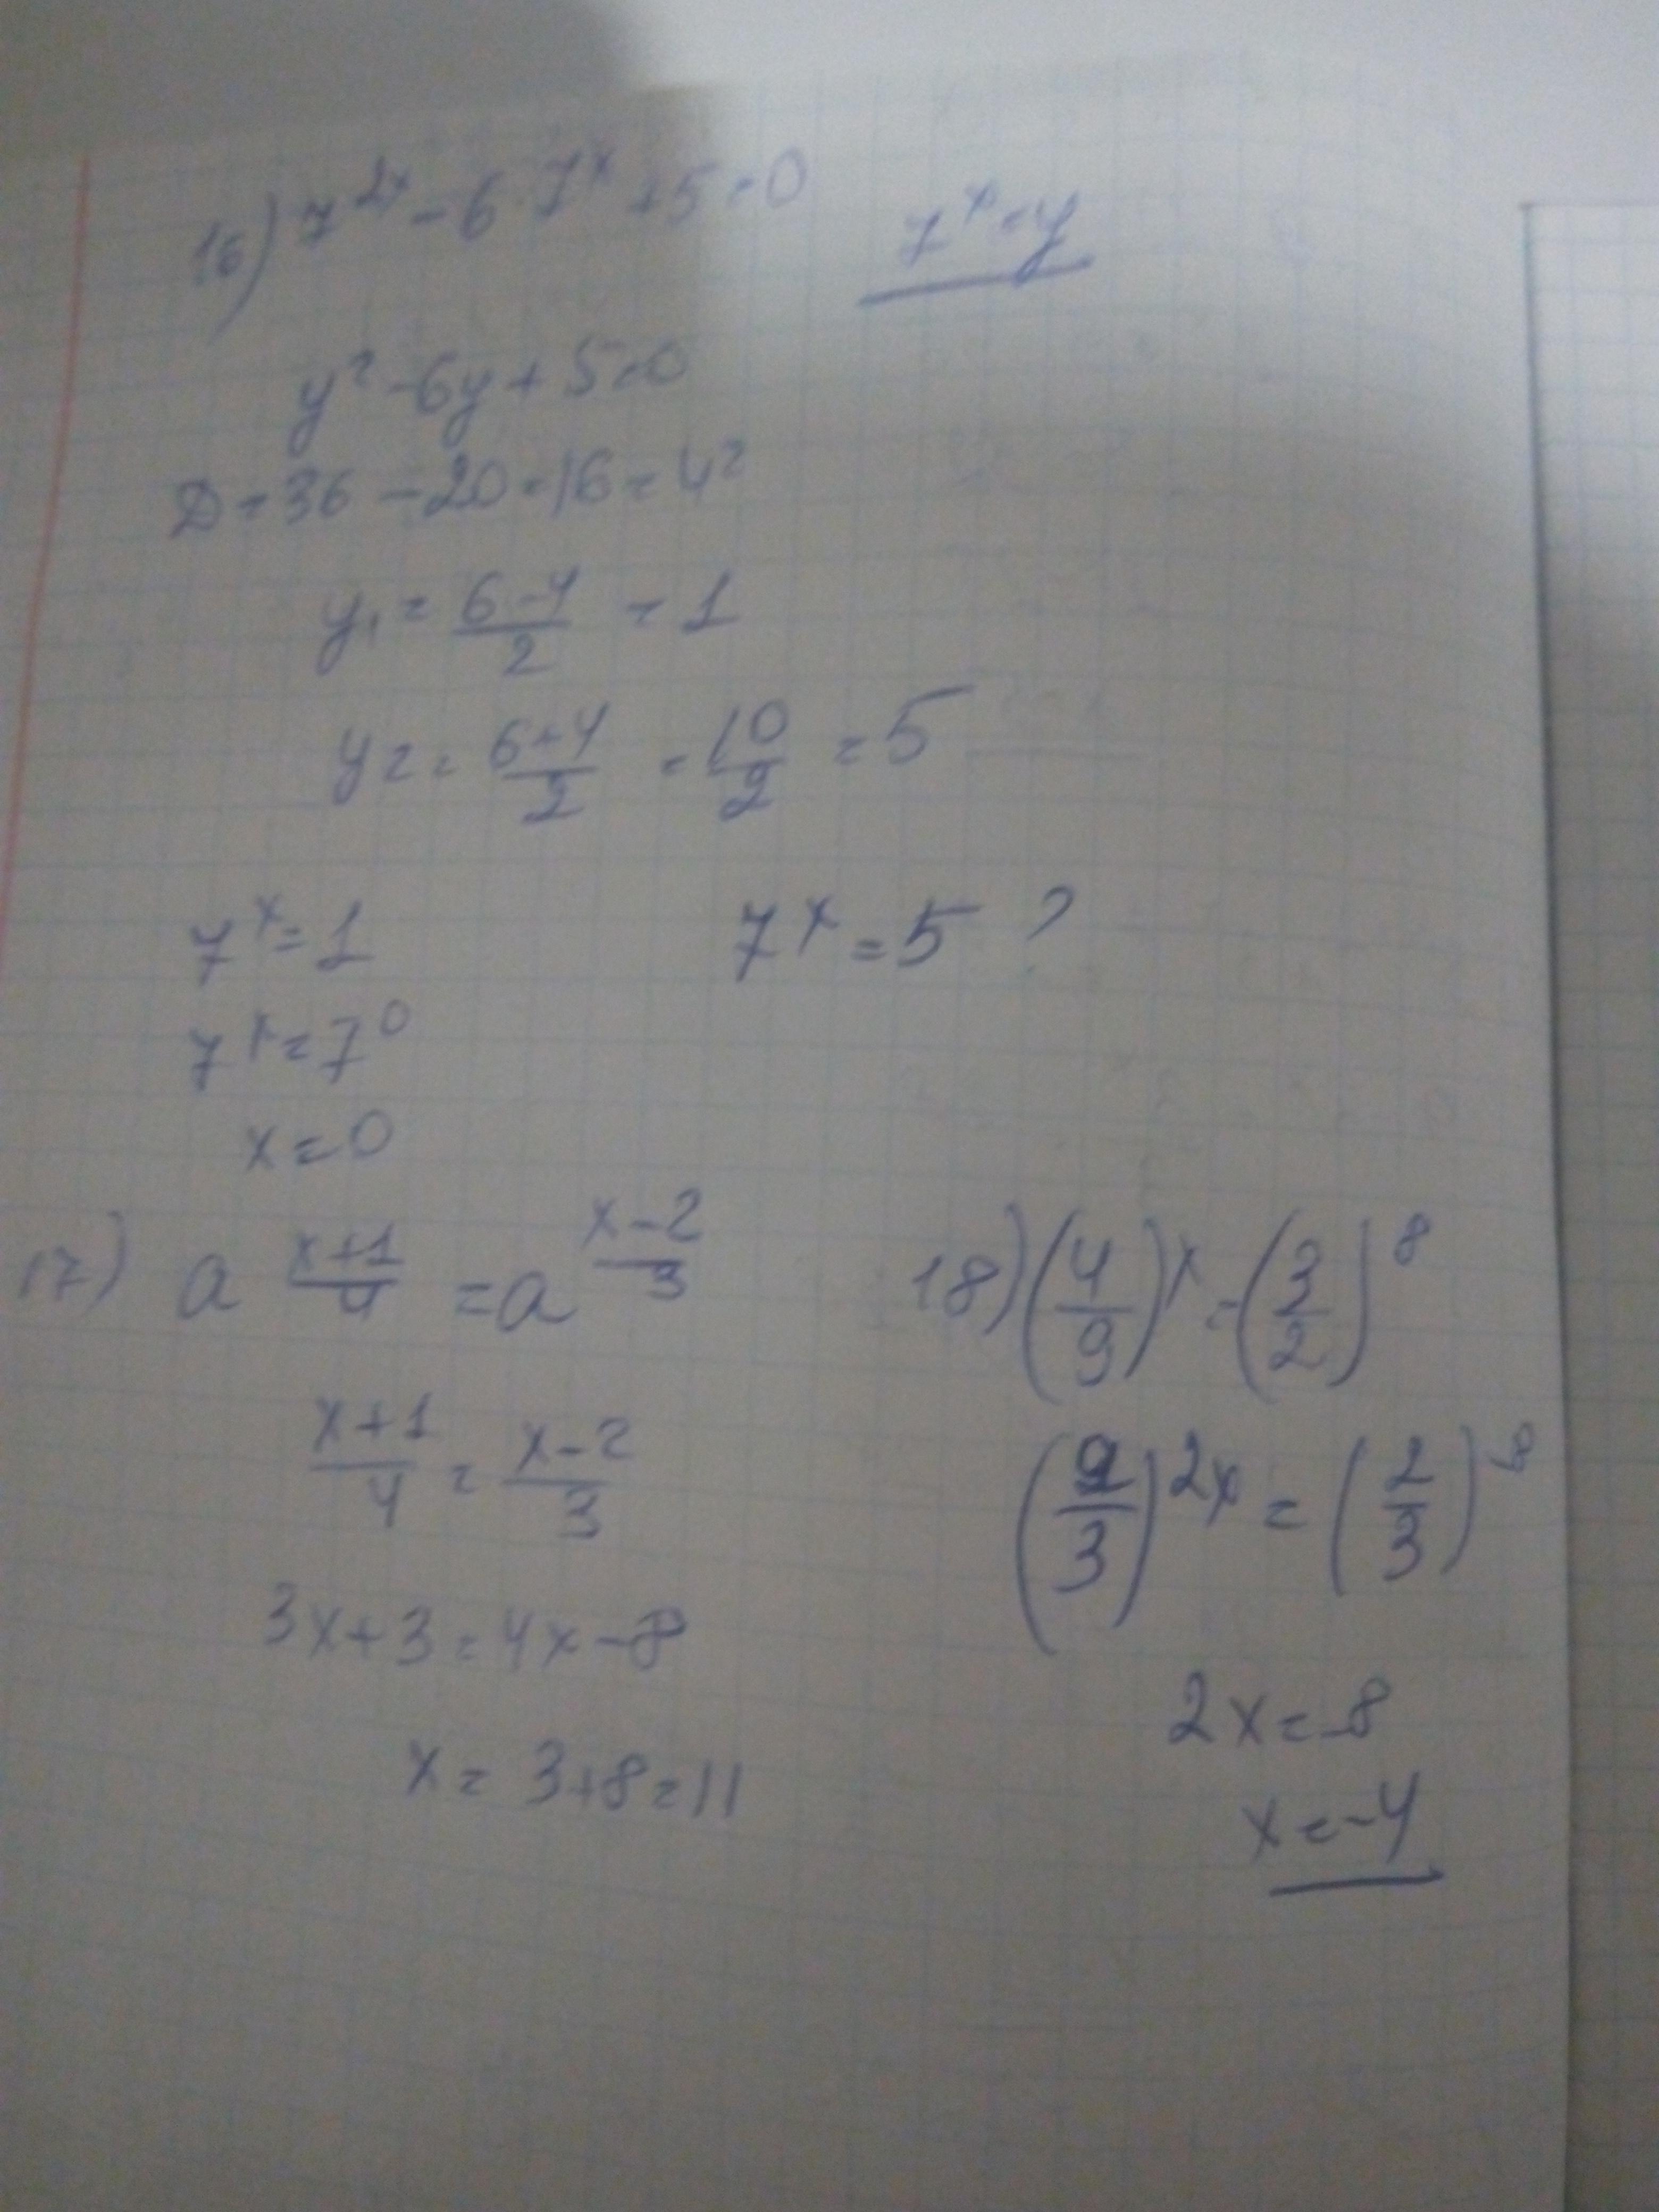 16) 7^{2x} - 6 · 7^x + 5 = 0    7^x = y
y² - 6y + 5 = 0
D = 36 - 20 = 16 = 4²
y₁ = \frac{6-4}{2} = 1
y₂ = \frac{6+4}{2} = \frac{10}{2} = 5
7^x = 1    7^x = 5 ?
7^x = 7^0
x = 0
17) a^{\frac{x+1}{4}} = a^{\frac{x-2}{3}}
\frac{x+1}{4} = \frac{x-2}{3}
3x + 3 = 4x - 8
x = 3 + 8 = 11
18) (\frac{4}{9})^x = (\frac{3}{2})^8
(\frac{2}{3})^{2x} = (\frac{2}{3})^{-8}
2x = -8
x = -4